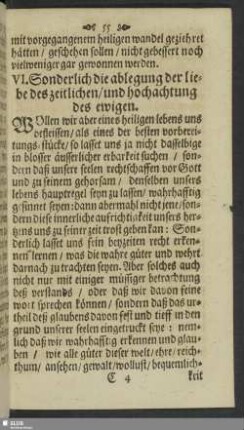 55
mit vorgegangenem heiligen wandel geziehret
hätten / geschehen sollen / nicht gebessert noch
vielweniger gar gewonnen werden.
VI. Sonderlich die ablegung der lie-
be des zeitlichen / und hochachtung
des ewigen.
WOllen wir aber eines heiligen lebens uns
befleissen / als eines der besten vorberei-
tungs-stücke / so lasset uns ja nicht dasselbige
in blosser äusserlicher erbarkeit suchen / son-
dern daß unsere seelen rechtschaffen vor Gott
und zu seinem gehorsam / denselben unsers
lebens hauptregel seyn zu lassen / wahrhafftig
gesinnet seyen: dann abermahl nicht jene / son-
dern diese innerliche aufrichtigkeit unsers her-
tzens uns zu seiner zeit trost geben kan: Son-
derlich lasset uns fein beyzeiten recht erken-
nen lernen / was die wahre güter und wehrt
darnach zu trachten seyen. Aber solches auch
nicht nur mit einiger müssiger betrachtung
deß verstands / oder daß wir davon feine
wort sprechen können / sondern daß das ur-
theil deß glaubens davon fest und tieff in den
grund unserer seelen eingetruckt seye: nem-
lich daß wir wahrhafftig erkennen und glau-
ben / wie alle güter dieser welt / ehre / reich-
thum / ansehen / gewalt / wollust / bequemlich-
C 4 keit